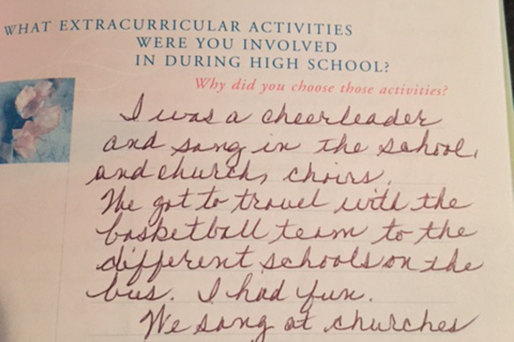 WHAT EXTRACURRICULAR ACTIVITIES
WERE YOU INVOLVED
IN DURING HIGH SCHOOL?
Why did you choose those activities?
I was a cheerleader
and sang in the school,
and church, choirs.
We got to travel with the
basketball team to the
different schools on the
bus. I had fun.
We sang at churches